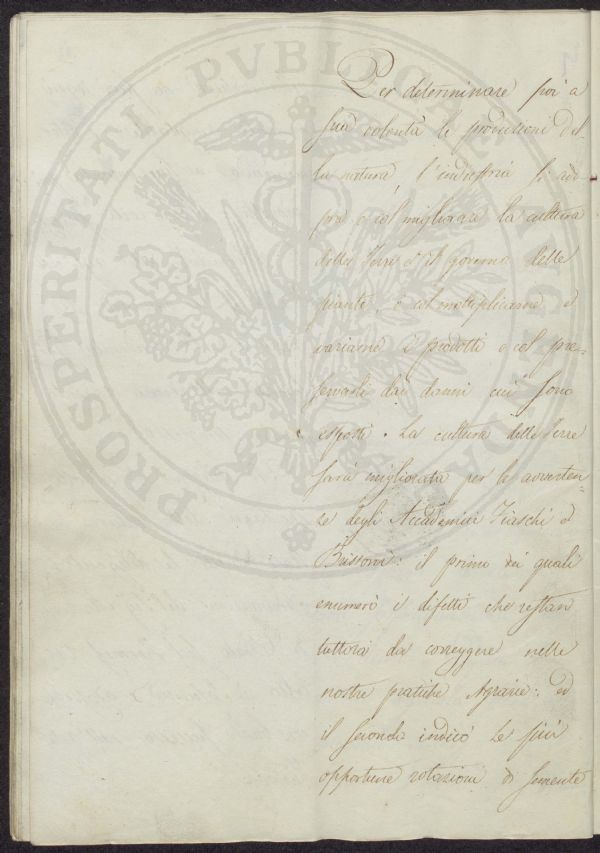 PROSPERITATI PUBLICAE AUGENDAE
Per determinare poi a
sua volontà le produzione del-
la natura, l'industria si ado-
pra o col migliorare la cultura
delle Terre e il governo delle
piante, o col moltiplicarne e
variarne i prodotti o col pre-
servarli dai danni cui sono
esposti. La cultura delle Terre
sarà migliorata per le avverten-
ze degli Accademici Fiaschi e
il primo dei quali
enumerò i difetti che restan
tuttora da correggere nelle
nostre pratiche Agrarie: ed
il secondo indicò le più
opportune rotazioni di semente